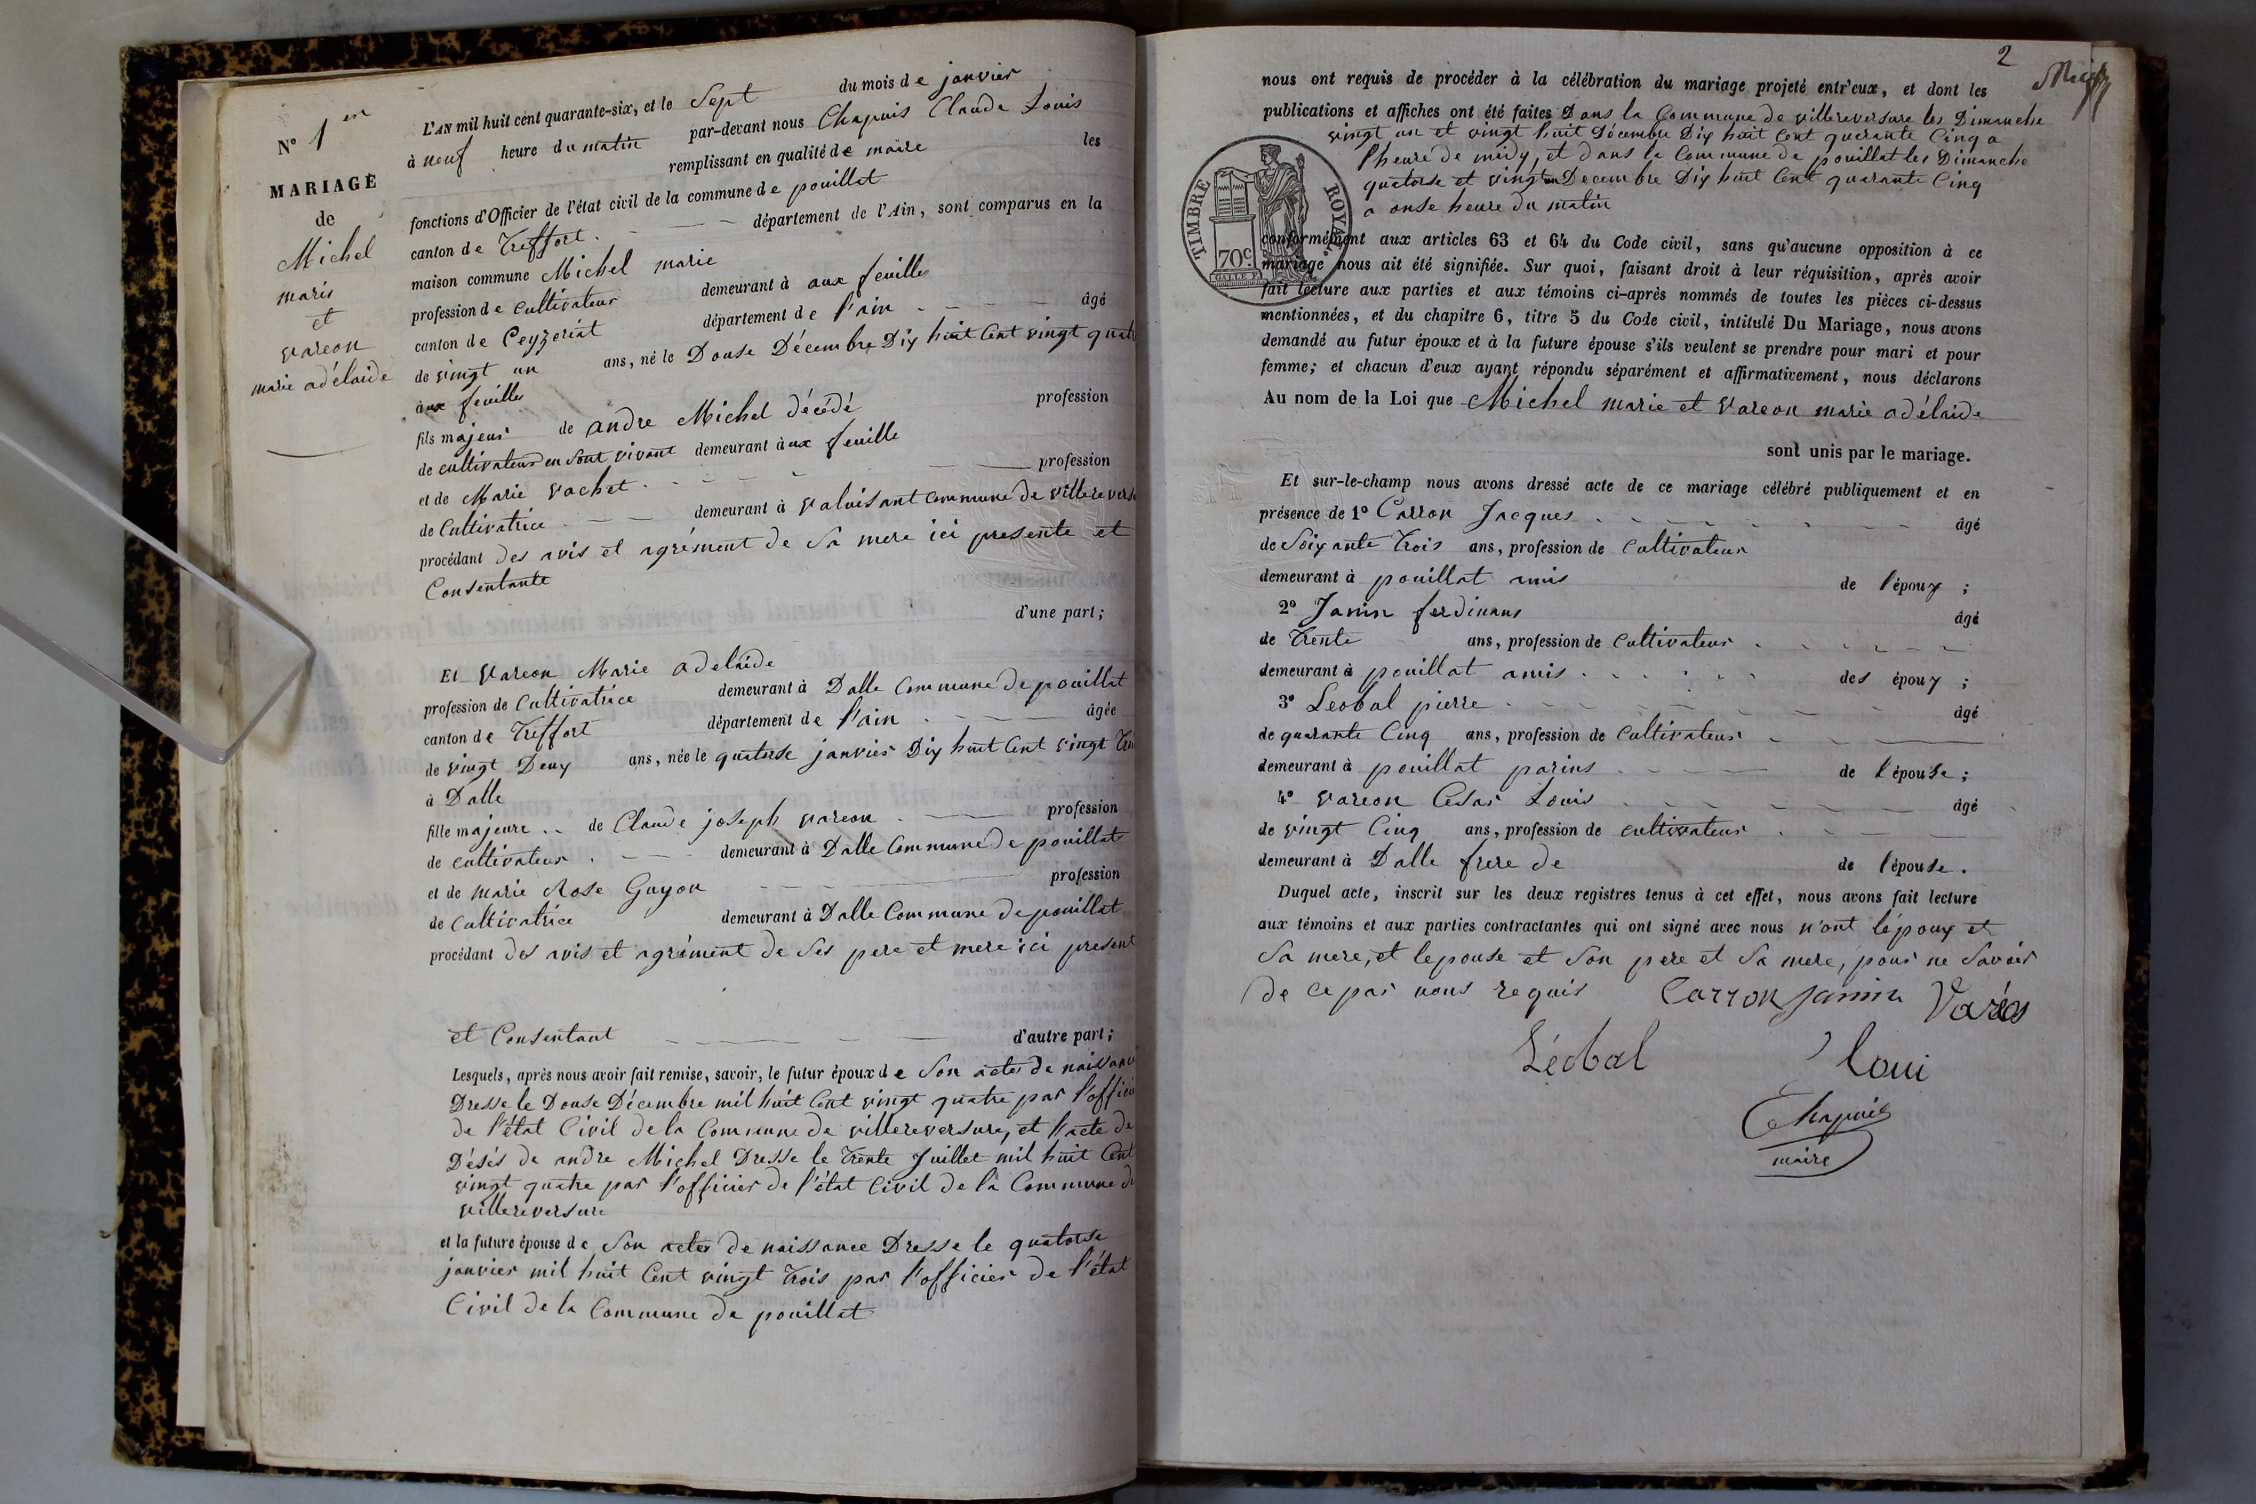 N° 1er
MARIAGE
de
Michel
marie
et
vareon
marie adélaide
L'AN mil huit cent quarante-six, et le Sept du mois de janvier
à neuf heure du matin par-devant nous Chapuis Claude Louis
remplissant en qualité de maire les
fonctions d'Officier de l'état civil de la commune de pouillat
canton de Treffort département de l'Ain, sont comparus en la
maison commune Michel marie
profession de cultivateur demeurant à aux feuilles
canton de Ceyzeriat département de l'ain âgé
de vingt un ans, né le Douse Décembre Dix huit Cent vingt quatre
à aux feuilles
fils majeur de andre Michel décédé profession
de cultivateur en sont vivant demeurant à ux feuille
et de Marie vachet profession
de Cultivatrice demeurant à valuisant commune de villereversure
procédant des avis et agrément de Sa mere ici presente et
Consentante
d'une part;
Et vareon Marie adelaide
profession de Cultivatrice demeurant à Dalle Commune de pouillat
canton de Treffort département de l'ain âgée
de vingt Deux ans, née le quatorse janvier Dix huit Cent vingt Trois
à Dalle
fille majeure de Claude joseph vareon profession
de cultivateur demeurant à Dalle Commune de pouillat
et de marie Rose Guyon profession
de Cultivatrice demeurant à Dalle Commune de pouillat
procédant des avis et agrément de Ses pere et mere ici present
et Consentant d'autre part;
Lesquels, après nous avoir fait remise, savoir, le futur époux de Son actes de naissance
Dresse le Douse Décembre mil huit Cent vingt quatre par l'officier
de l'état Civil de la Commune de villereversure, et l'acte de
Désés de andre Michel Dresse le Trente Juillet mil huit Cent
vingt quatre par l'officier de l'état Civil de la Commune de
villereversure
et la future épouse de Son actes de naissance Dresse le quatorse
janvier mil huit Cent vingt Trois par l'officier de l'état
Civil de la Commune de pouillat
2
nous ont requis de procéder à la célébration du mariage projeté entr'eux, et dont les
publications et affiches ont été faites Dans la Commune de villereversure les Dimanche
vingt un et vingt huit Décembre Dix huit Cent quarante Cinq a
l'heure de midy, et dans la Commune de pouillat les Dimanche
quatorse et vingt un Decembre Dix huit Cent quarante Cinq
a onse heure du matin
TIMBRE ROYAL.
70c
conformément aux articles 63 et 64 du Code civil, sans qu'aucune opposition à ce
mariage nous ait été signifiée. Sur quoi, faisant droit à leur réquisition, après avoir
fait lecture aux parties et aux témoins ci-après nommés de toutes les pièces ci-dessus
mentionnées, et du chapitre 6, titre 5 du Code civil, intitulé Du Mariage, nous avons
demandé au futur époux et à la future épouse s'ils veulent se prendre pour mari et pour
femme; et chacun d'eux ayant répondu séparément et affirmativement, nous déclarons
Au nom de la Loi que Michel marie et vareon marie adélaide
sont unis par le mariage.
Et sur-le-champ nous avons dressé acte de ce mariage célébré publiquement et en
présence de 1° Carron Jacques âgé
de Soixante Trois ans, profession de Cultivateur
demeurant à pouillat amis de l'époux;
2° Janin ferdinans âgé
de Trente ans, profession de Cultivateur
demeurant à pouillat amis des époux;
3° Leobal pierre âgé
de quarante Cinq ans, profession de Cultivateur
demeurant à pouillat parins de l'épouse;
4° vareon Cesar Louis âgé
de vingt Cinq ans, profession de cultivateur
demeurant à Dalle frere de de l'épouse.
Duquel acte, inscrit sur les deux registres tenus à cet effet, nous avons fait lecture
aux témoins et aux parties contractantes qui ont signé avec nous n'ont l'époux et
Sa mere, et lepouse et Son pere et Sa mere, pour ne Savoir
de ce par nous requis Carron Janin Varéon
Léobal loui
Chapuis
maire